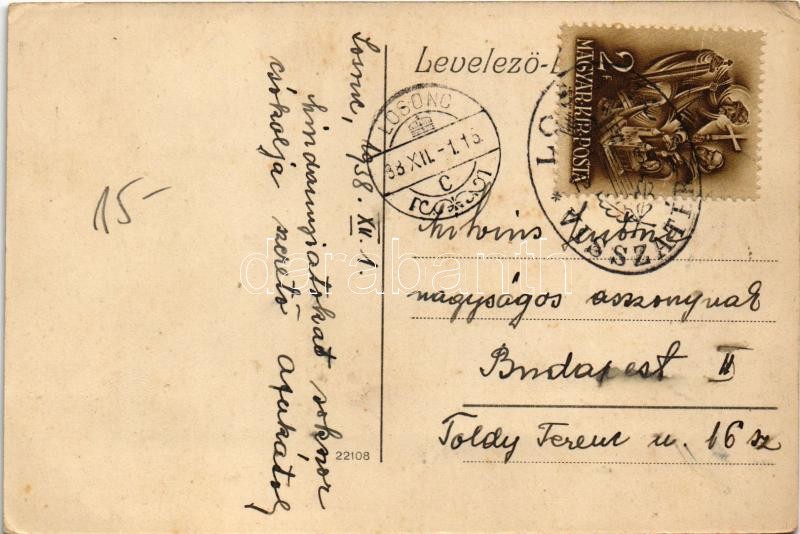 Levelező-L
2 F
MAGYAR KIR. POSTA
LOSONC
38 XII.-1.15
C
LO
VISSZATÉR
darabanth
Losonc, 1938. XII. 1.
Mindannyiatokat sokszor
csókolja szerető
15-
Antalné
nagyságos asszonynak
Budapest II
Toldy Ferenc u. 16 sz
22108